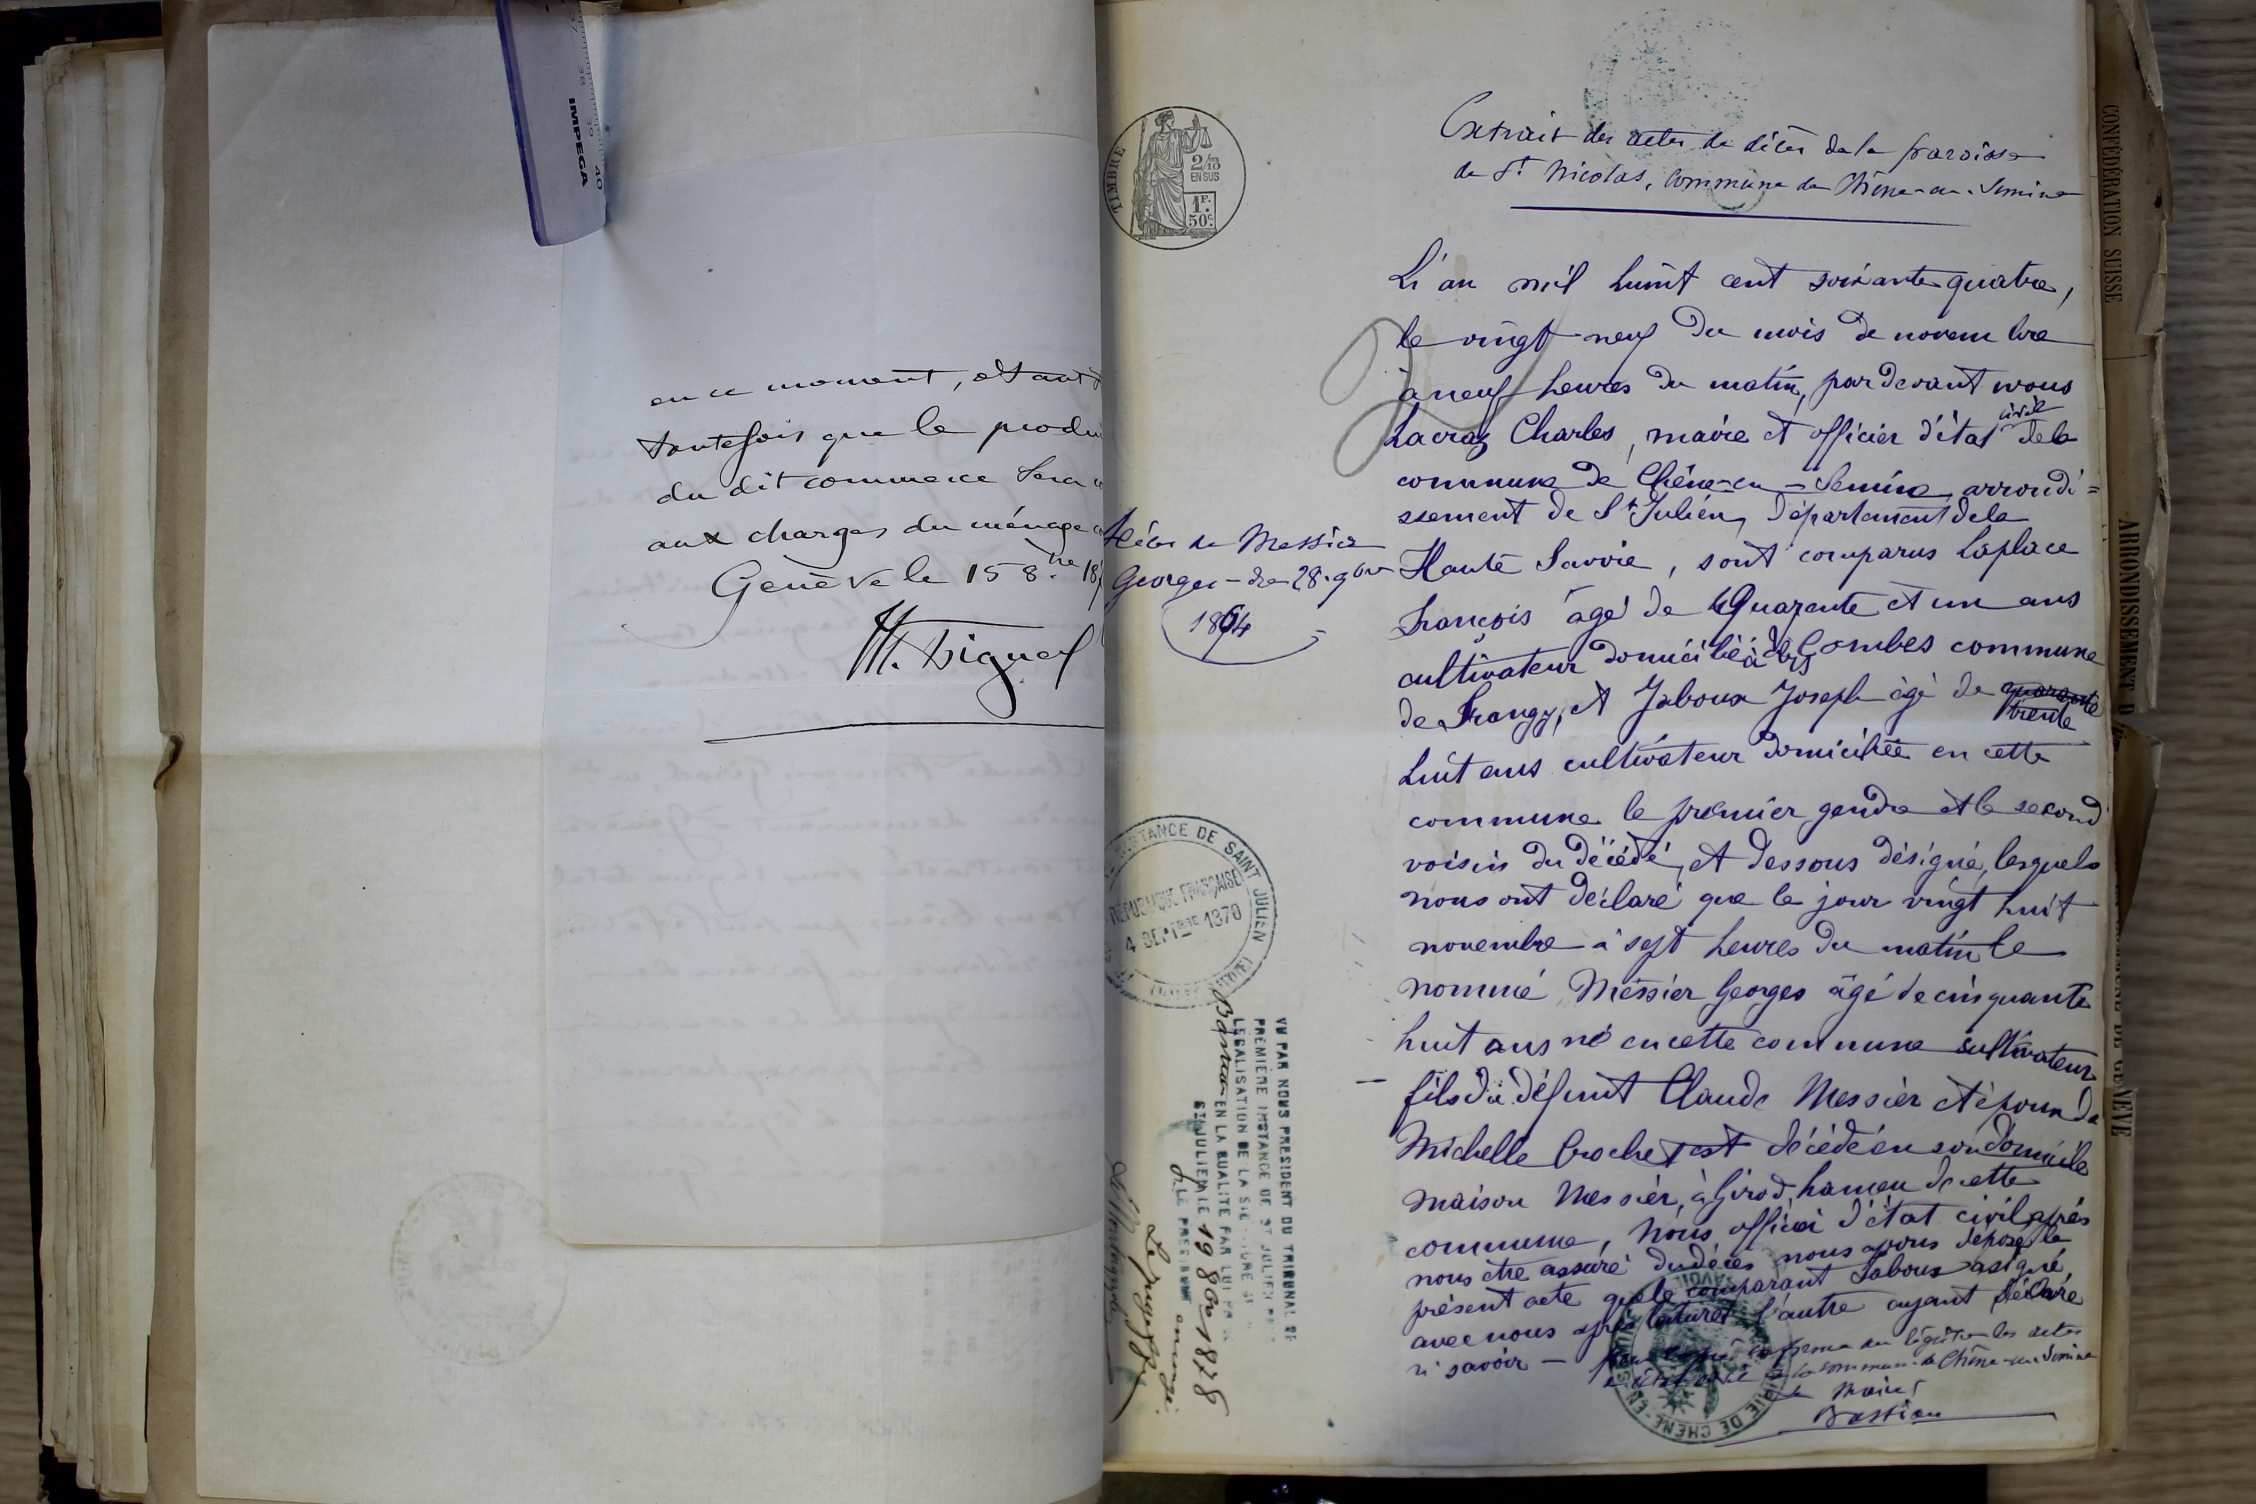 en ce moment, et ant
toutefois que le produi
du dit commerce sera
aux charges du ménage
Genève le 15 8.bre 18
IMPEGA
40
TIMBRE
2/10
EN SUS
1F.
50c.
Extrait des actes de décès de la paroisse
de St Nicolas, commune de Chêne-en-Semine
L'an mil huit cent soixante quatre,
le vingt neuf du mois de novembre
à neuf heures du matin, par devant nous
Lacraz Charles, maire et officier d'état civil de la
commune de Chêne-en-Semine, arrondi=
ssement de St Julien, département de la
Haute Savoie, sont comparus Laplace
François âgé de Quarante et un ans
cultivateur domicilié à Combes commune
de Frangy, et Jaboux Joseph âgé de quarante
trente
huit ans cultivateur domiciliée en cette
commune le premier gendre et le second
voisin du décédé, et dessous désigné, lesquels
nous ont déclaré que le jour vingt huit
novembre à sept heures du matin le
nommé Messier Georges âgé de cinquante
huit ans né en cette commune cultivateur
fils du défunt Claude Messier et époux de
Michelle Crochet est décédé en son domicile
maison Messier, à Girod, hameau de cette
commune, Nous, officier d'état civil après
nous être assuré du décès nous avons déposé le
présent acte que le comparant Jaboux a signé
avec nous après lecture et l'autre ayant déclaré
ni savoir — conforme au régistre des actes
de la commune de Chêne-en-Semine
Le Maire
Bastian
Décès de Messier
Georges - du 28. 9bre
1864
INSTANCE DE SAINT JULIEN
RÉPUBLIQUE FRANÇAISE
4 SEPTBRE 1870
VU PAR NOUS PRESIDENT DU TRIBUNAL DE
PREMIERE INSTANCE DE ST JULIEN
LEGALISATION DE LA
Bastian EN LA QUALITE PAR LUI
ST JULIEN LE 19 8bre 1878
LE PRESIDENT
MAIRIE DE CHÊNE-EN-SEMINE
CONFÉDÉRATION SUISSE
ARRONDISSEMENT D
DE GENÈVE